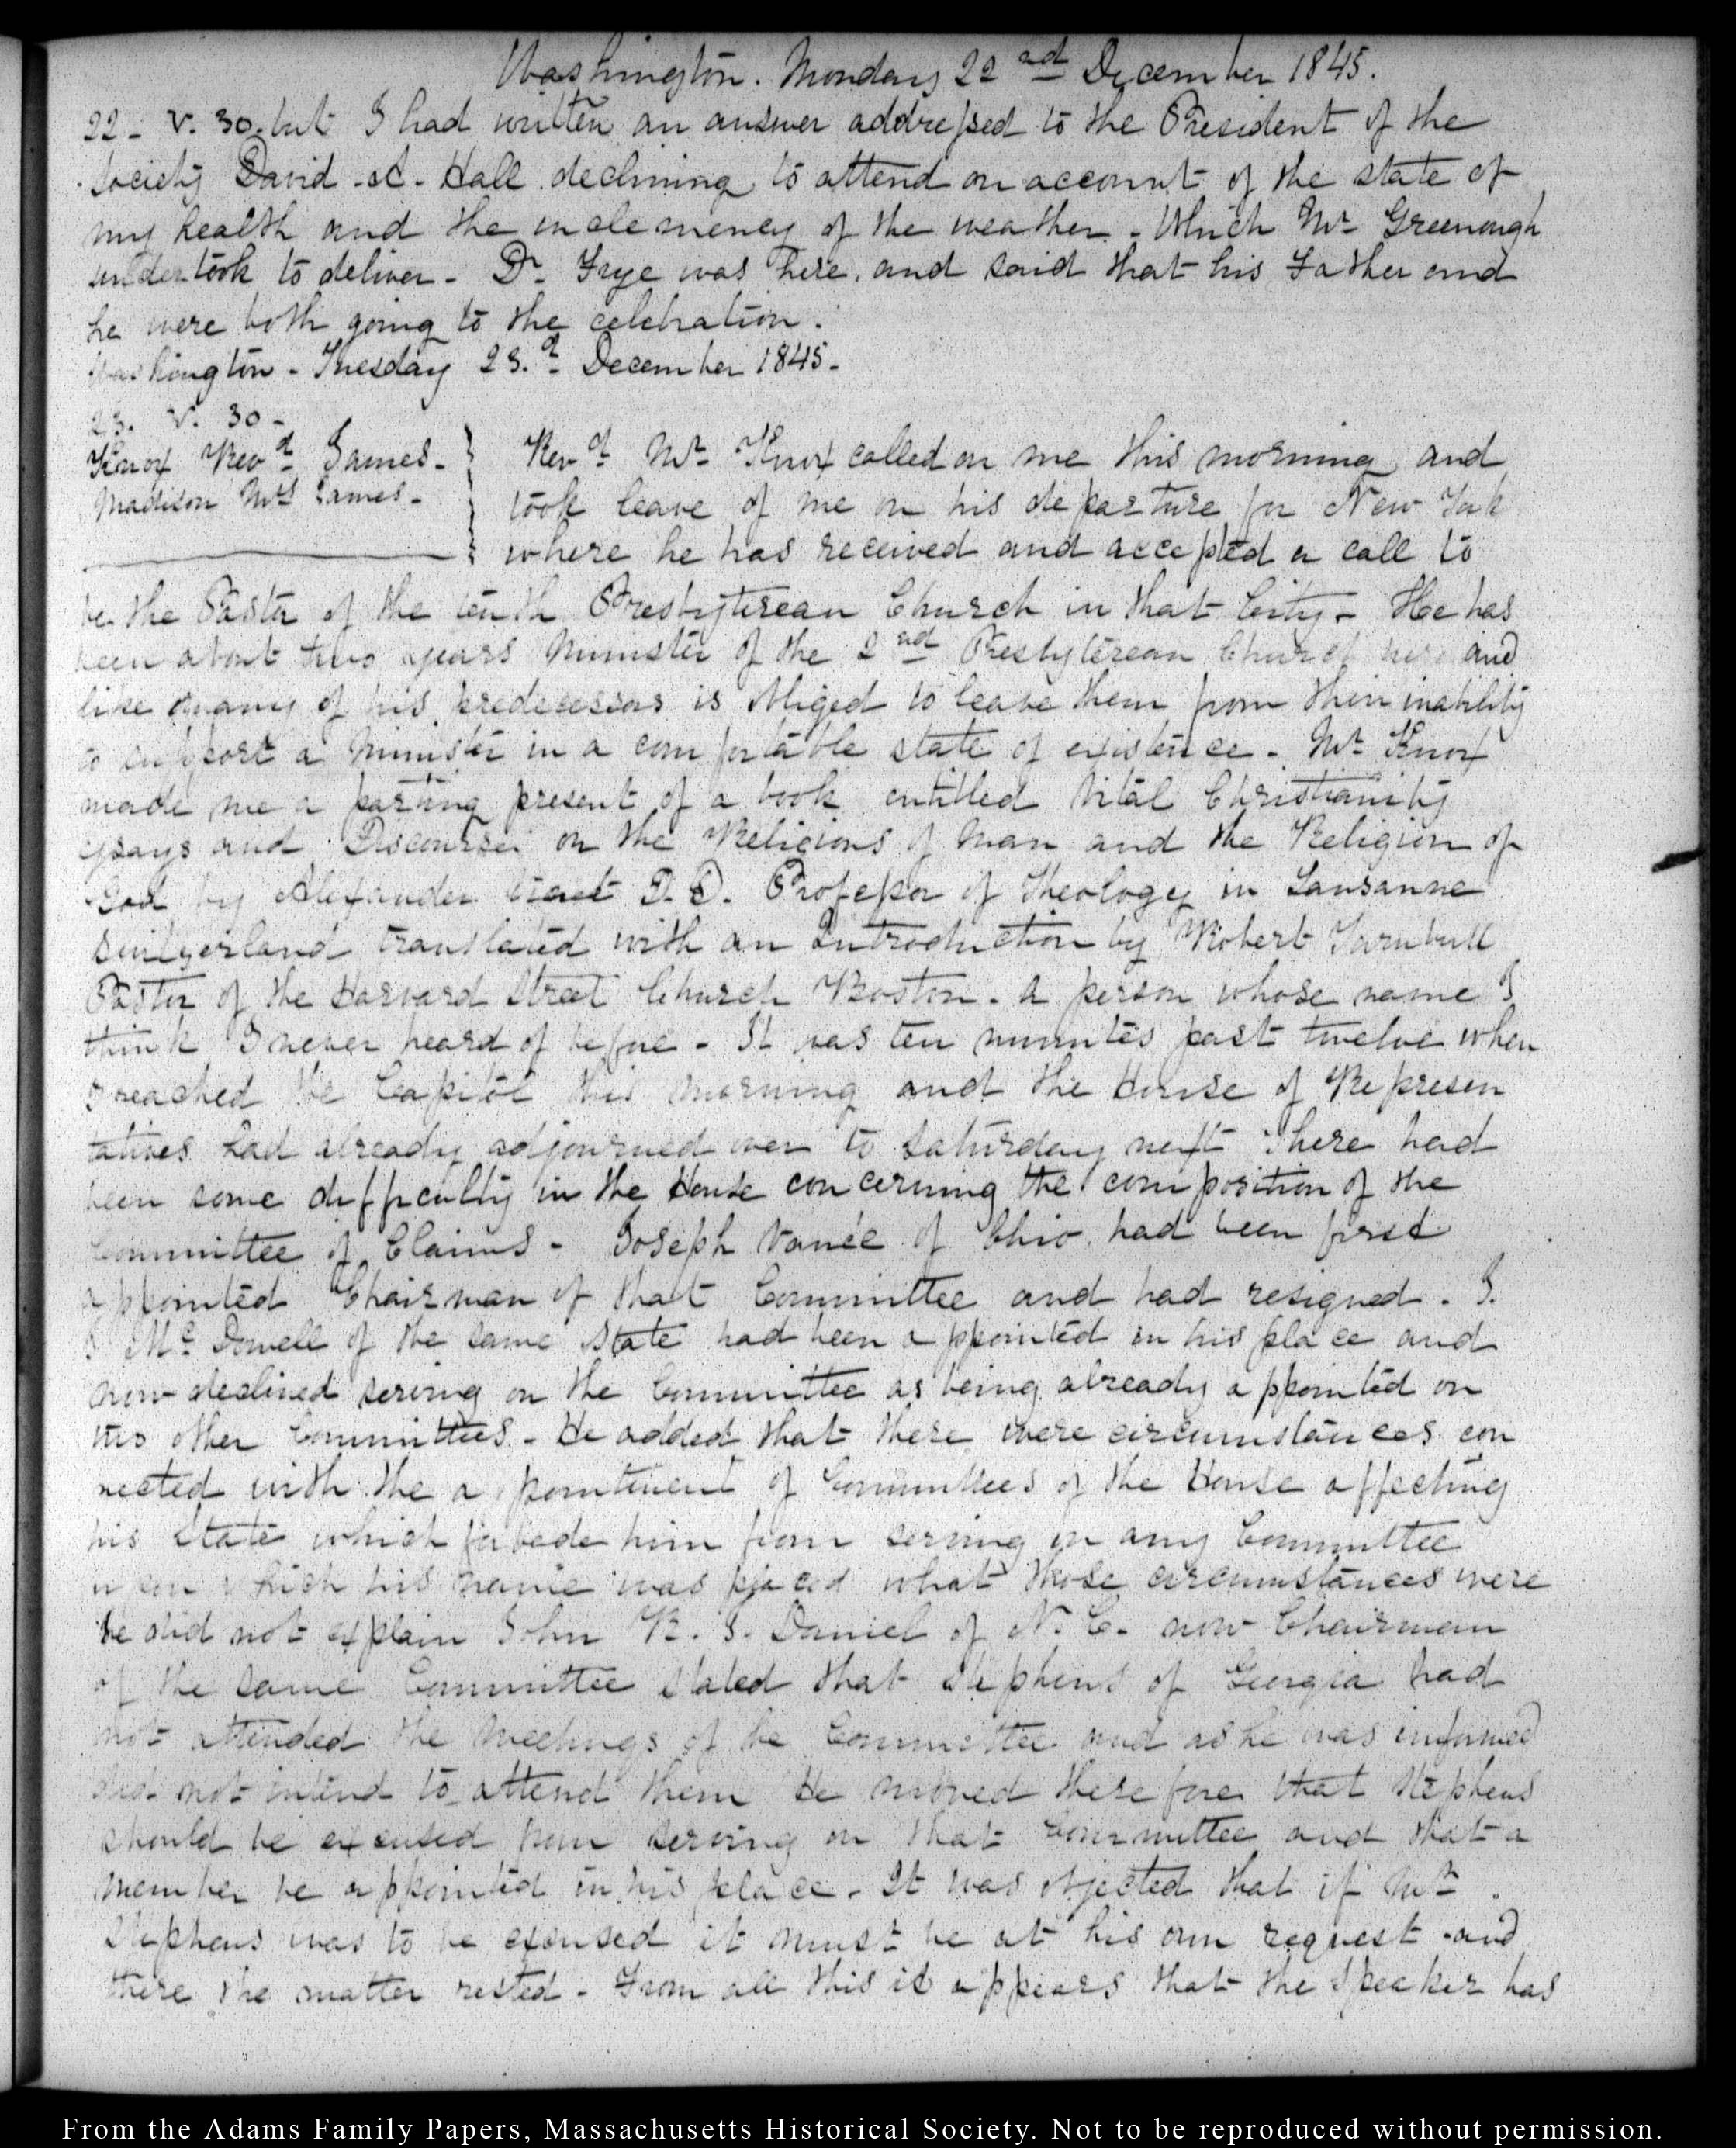 Washington. Monday 22nd December 1845.
22 - V. 30. but I had written an answer addressed to the President of the
Society David A. Hall declining to attend on account of the state of
my health and the inclemency of the weather - Which Mr Greenough
undertook to deliver - Dr Frye was here, and said that his Father and
he were both going to the celebration.
Washington - Tuesday 23.d December 1845 -
23. V. 30 -
Knox Revd James -
Madison Mrs James -
Revd Mr Knox called on me this morning and
took leave of me on his departure for New York
where he has received and accepted a call to
be the Pastor of the tenth Presbyterean Church in that City - He has
been about two years Minister of the 2nd Presbyterean Church here and
like many of his predecessors is obliged to leave them from their inability
to support a Minister in a comfortable state of existence - Mr Knox
made me a parting present of a book entitled Vital Christianity
essays and Discourses on the Religions of Man and the Religion of
God by Alexander D.D. Professor of Theology in Lausanne
Switzerland translated with an Introduction by Robert Turnbull
Pastor of the Harvard Street Church Boston - a person whose name I
think I never heard of before - It was ten minutes past twelve when
I reached the Capitol this morning and the House of Represen
tatives had already adjourned over to Saturday next There had
been some difficulty in the House concerning the composition of the
Committee of Claims - Joseph Vance of Ohio had been first
appointed Chairman of that Committee and had resigned - J.
J McDowell of the same State had been appointed in his place and
now declined serving on the Committee as being already appointed on
two other Committees - He added that there were circumstances con
nected with the appointment of Committees of the House affecting
his State which forbade him from serving on any Committee
upon which his name was placed what those circumstances were
he did not explain John R. J. Daniel of N. C. now Chairman
of the same Committee stated that Stephens of Georgia had
not attended the meetings of the Committee and as he was informed
did not intend to attend them He moved therefore that Stephens
should be excused from serving on that Committee and that a
member be appointed in his place - It was objected that if Mr
Stephens was to be excused it must be at his own request - and
there the matter rested - From all this it appears that the Speaker has
From the Adams Family Papers, Massachusetts Historical Society. Not to be reproduced without permission.